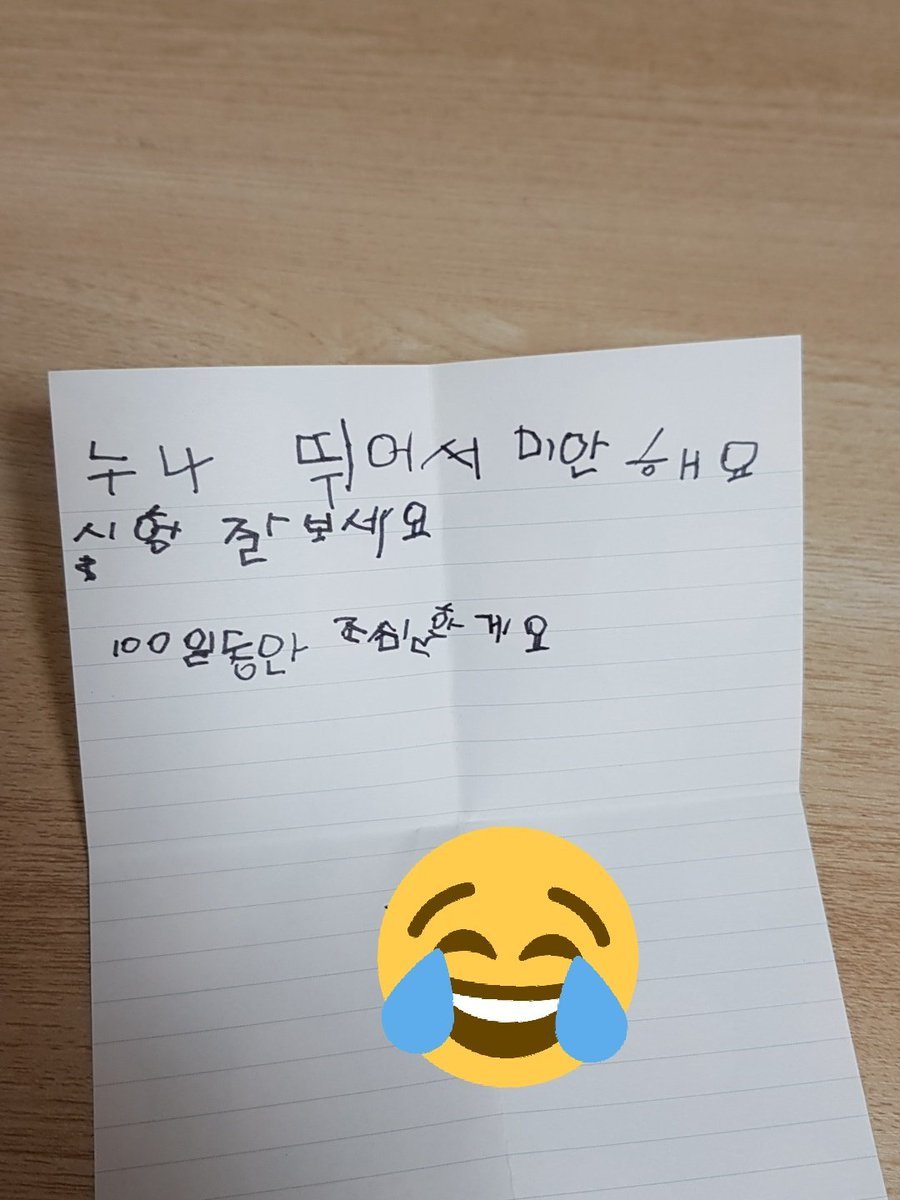 누나 뛰어서 미안해요
시험 잘보세요
100일동안 조심할게요